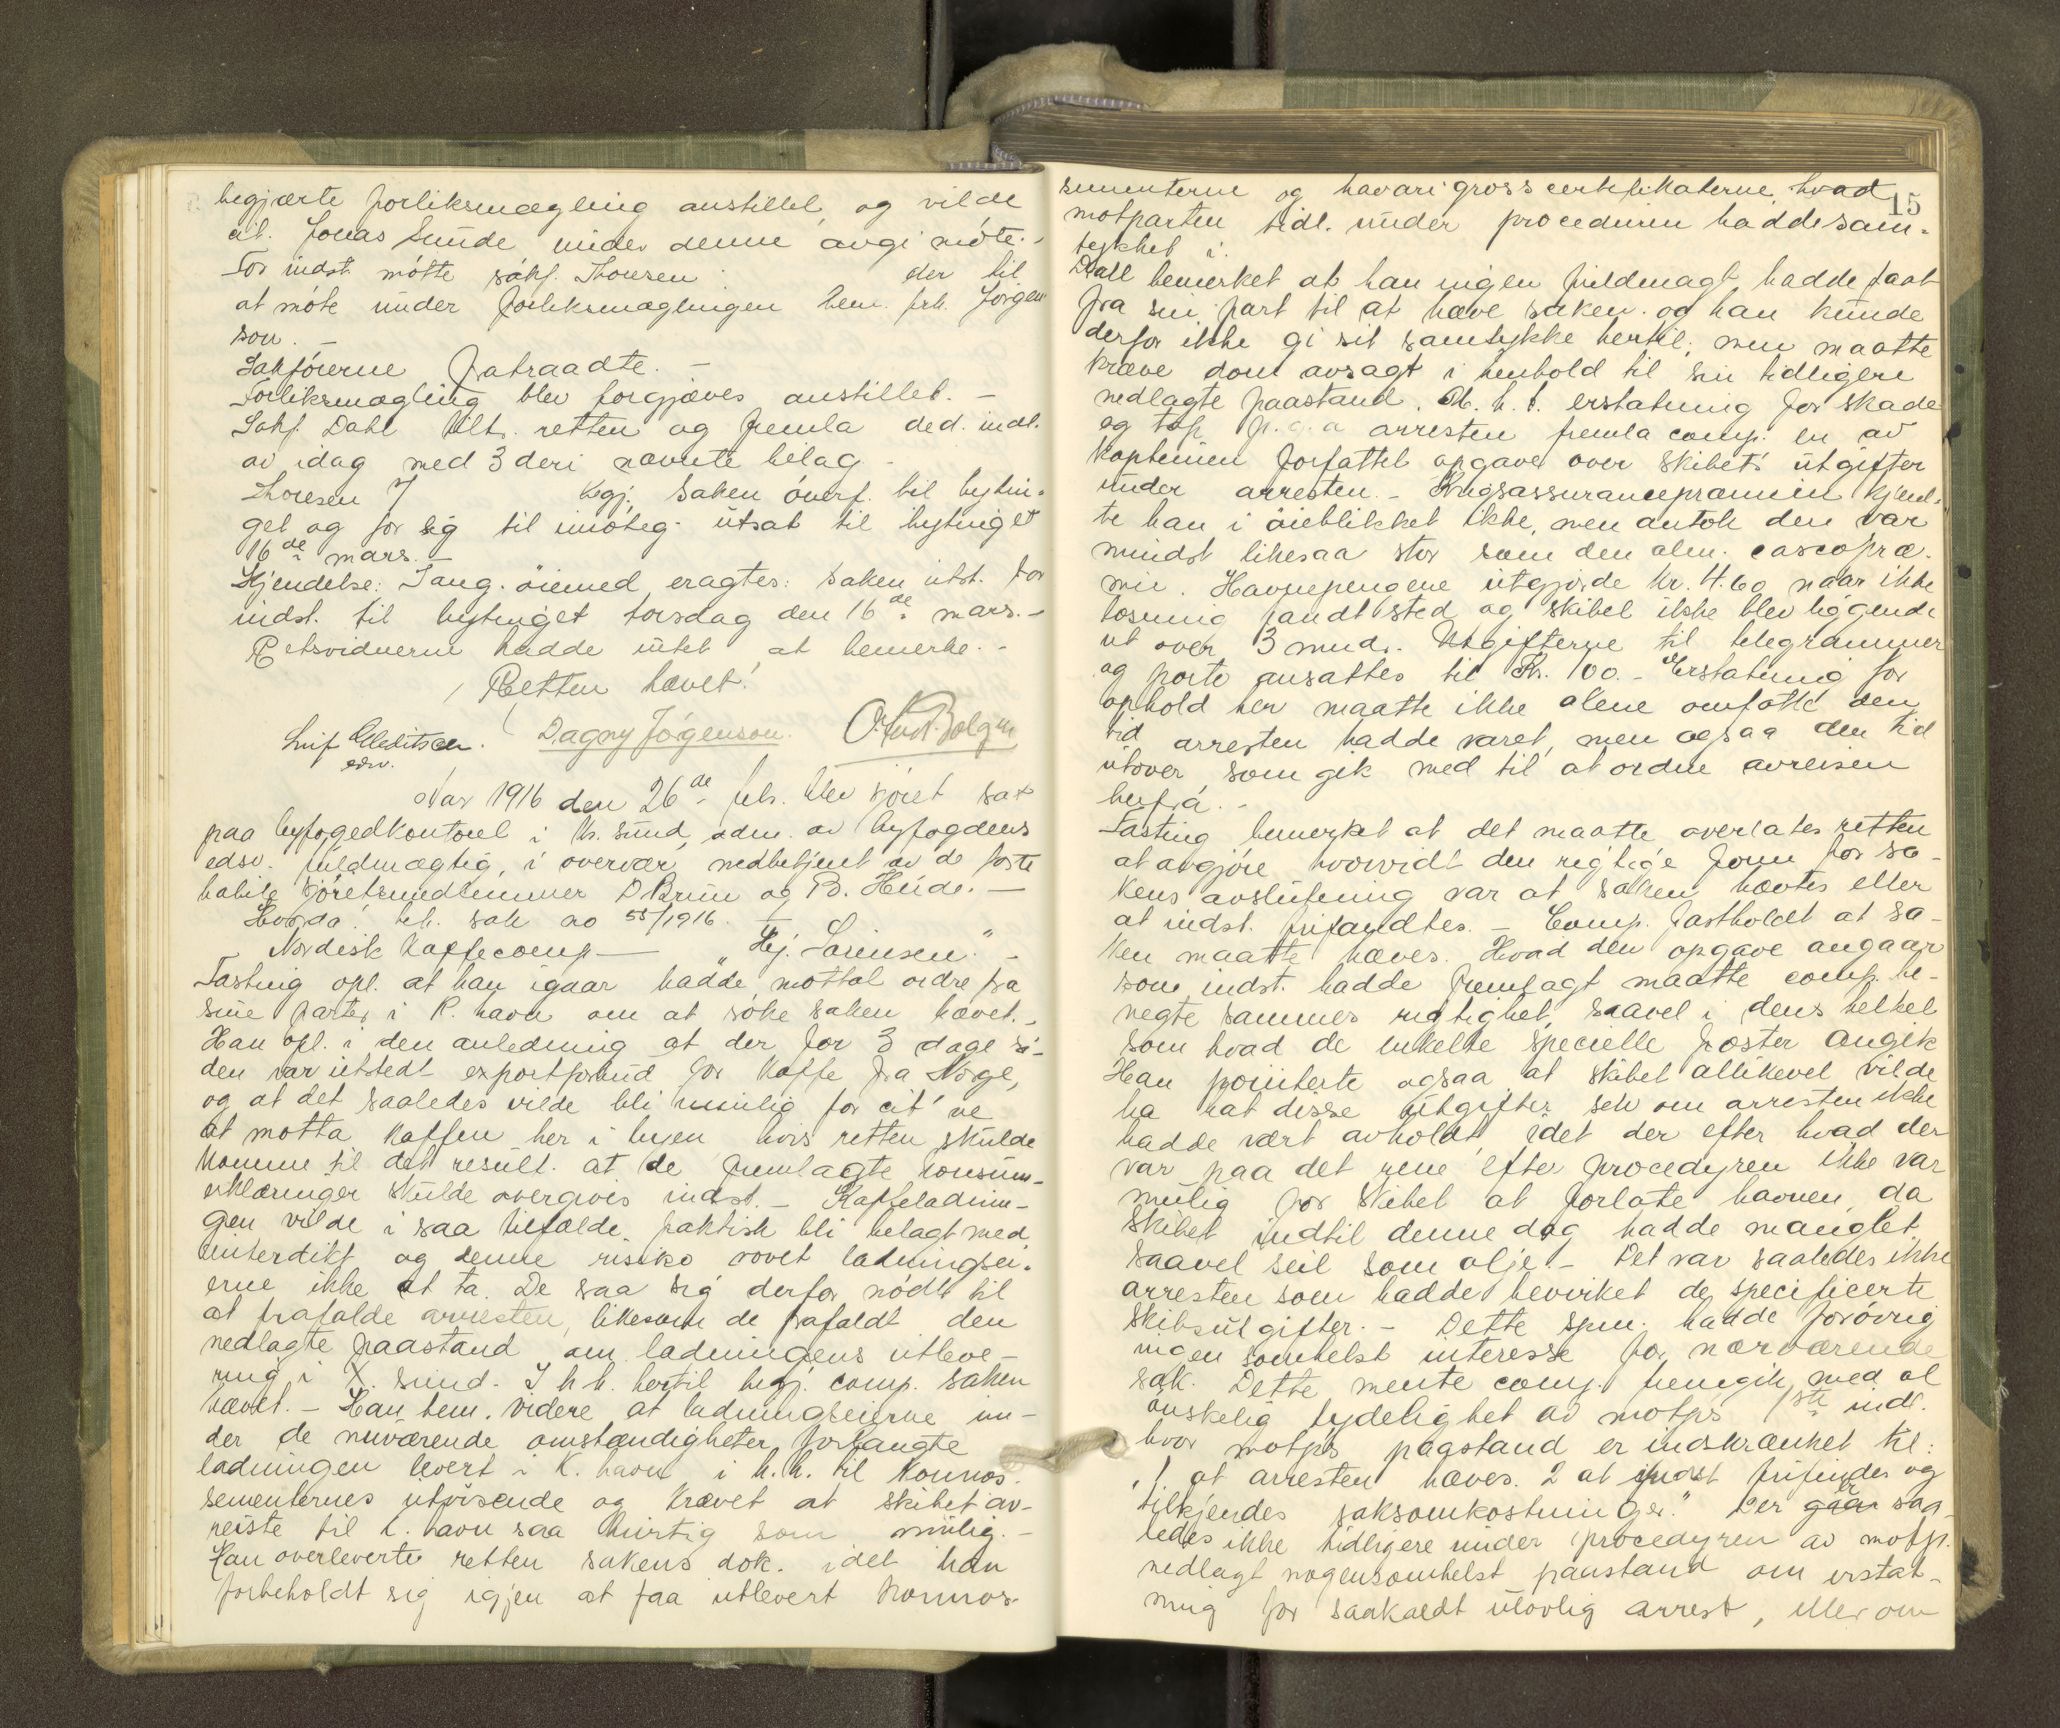 begjærte forliksmægling anstillet, og vilde
cit. Jonas Sunde under denne avgi møte. -
For indst. møtte sakf. Thoresen der til
at møte under forliksmæglingen bem. frk. Jørgen
son. -
Sakførerne fratraadte. -
Forliksmægling blev forgjæves anstillet. -
Sakf. Dahl tiltr. retten og fremla ded. indl.
av idag med 3 deri nævnte bilag -
Thoresen begj. saken overf. til bytin-
get og for sig til imøteg. utsat til bytinget
16de mars. -
Kjendelse: I ang. øiemed eragtes: Saken utst. for
indst. til bytinget torsdag den 16de mars. -
Retsvidnerne hadde intet at bemerke. -
Retten hævet!
Leif Gleditsch. Dagny Jørgenson.
edsv.
Aar 1916 den 26de feb. blev sjøret sat
paa byfogedkontoret i Kr.sund, adm. av byfogdens
edsv. fuldmægtig, i overvær nedbetjent av de faste
habile sjøretsmedlemmer D Brun og B. Heide. -
Hvorda! beh. sak no 55/1916.
Nordisk Kaffecomp — "Hj. Sørensen." -
Fasting opl. at han igaar hadde mottat ordre fra
sine parter i K.havn om at søke saken hævet. -
Han opl. i den anledning at der for 3 dage si-
den var utstedt exportforbud for kaffe fra Norge,
og at det saaledes vilde bli umulig for cit'ne
at motta kaffen her i byen hvis retten skulde
komme til det result. at de fremlagte konsum-
erklæringer skulde overgives indst. - Kaffeladnin-
gen vilde i saa tilfælde faktisk bli belagt med
interdikt og denne risiko vovet ladningsei-
erne ikke at ta. De saa sig derfor nødt til
at frafalde arresten, likesom de frafaldt den
nedlagte paastand om ladningens utleve-
ring i K.sund. I h.h. hertil begj. comp. saken
hævet. - Han bem. videre at ladningseierne un-
der de nuværende omstændigheter forlangte
ladningen levert i K.havn i h.h. til konnos-
sementernes utvisende og krævet at skibet av-
reiste til K.havn saa hurtig som mulig. -
Han overleverte retten sakens dok. idet han
forbeholdt sig igjen at faa utlevert konnos-
15
sementerne og havarigrosscertifikaterne, hvad
motparten tidl. under proceduren hadde sam-
tykket i.
Dall bemerket at han ingen fuldmagt hadde faat
fra sin part til at hæve saken og han kunde
derfor ikke gi sit samtykke hertil, men maatte
kræve dom avsagt i henhold til sin tidligere
nedlagte paastand. M.h.t. erstatning for skade
og tap p.g.a arresten fremla comp. en av
kapteinen forfattet opgave over skibets utgifter
under arresten. - Krigsassurancepræmien kjend-
te han i øieblikket ikke, men antok den var
mindst likesaa stor som den alm. cascopræ-
mie. Havnepengene utgjorde kr. 4.60 naar ikke
losning fandt sted og skibet ikke blev liggende
ut over 3 mndr. Utgifterne til telegrammer
og porto ansattes til Kr. 100. - Erstatning for
ophold her maatte ikke alene omfatte den
tid arresten hadde varet, men ogsaa den tid
utover, som gik med til at ordne avreisen
herfra. -
Fasting bemerket at det maatte overlates retten
at avgjøre hvorvidt den rigtige form for sa-
kens avslutning var at saken hævtes eller
at indst. frifandtes. - Comp. fastholdt at sa-
ken maatte hæves. Hvad den opgave angaar
som indst. hadde fremlagt maatte comp. be-
negte sammes rigtighet, saavel i dens helhet
som hvad de enkelte specielle poster angik
Han pointerte ogsaa at skibet allikevel vilde
ha hat disse utgifter selv om arresten ikke
hadde vært avholdt, idet der efter hvad der
var paa det rene efter procedyren ikke var
mulig for skibet at forlate havnen, da
skibet indtil denne dag hadde manglet
saavel seil som olje. - Det var saaledes ikke
arresten som hadde bevirket de specificerte
skibsutgifter. - Dette spm. hadde forøvrig
ingen somhelst interesse for nærværende
sak. Dette mente comp. fremgik med al
ønskelig tydelighet av motp's 1ste indl.
hvor motp's paastand er indskrænket til:
"1 at arresten hæves. 2 at indst frifindes og
tilkjendes saksomkostninger." Der er saa-
ledes ikke tidligere under procedyren av motp.
nedlagt nogensomhelst paastand om erstat-
ning for saakaldt ulovlig arrest, eller om